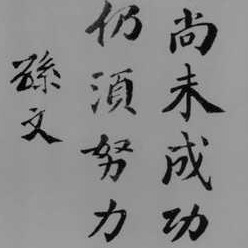 尚未成功
仍須努力
孫文